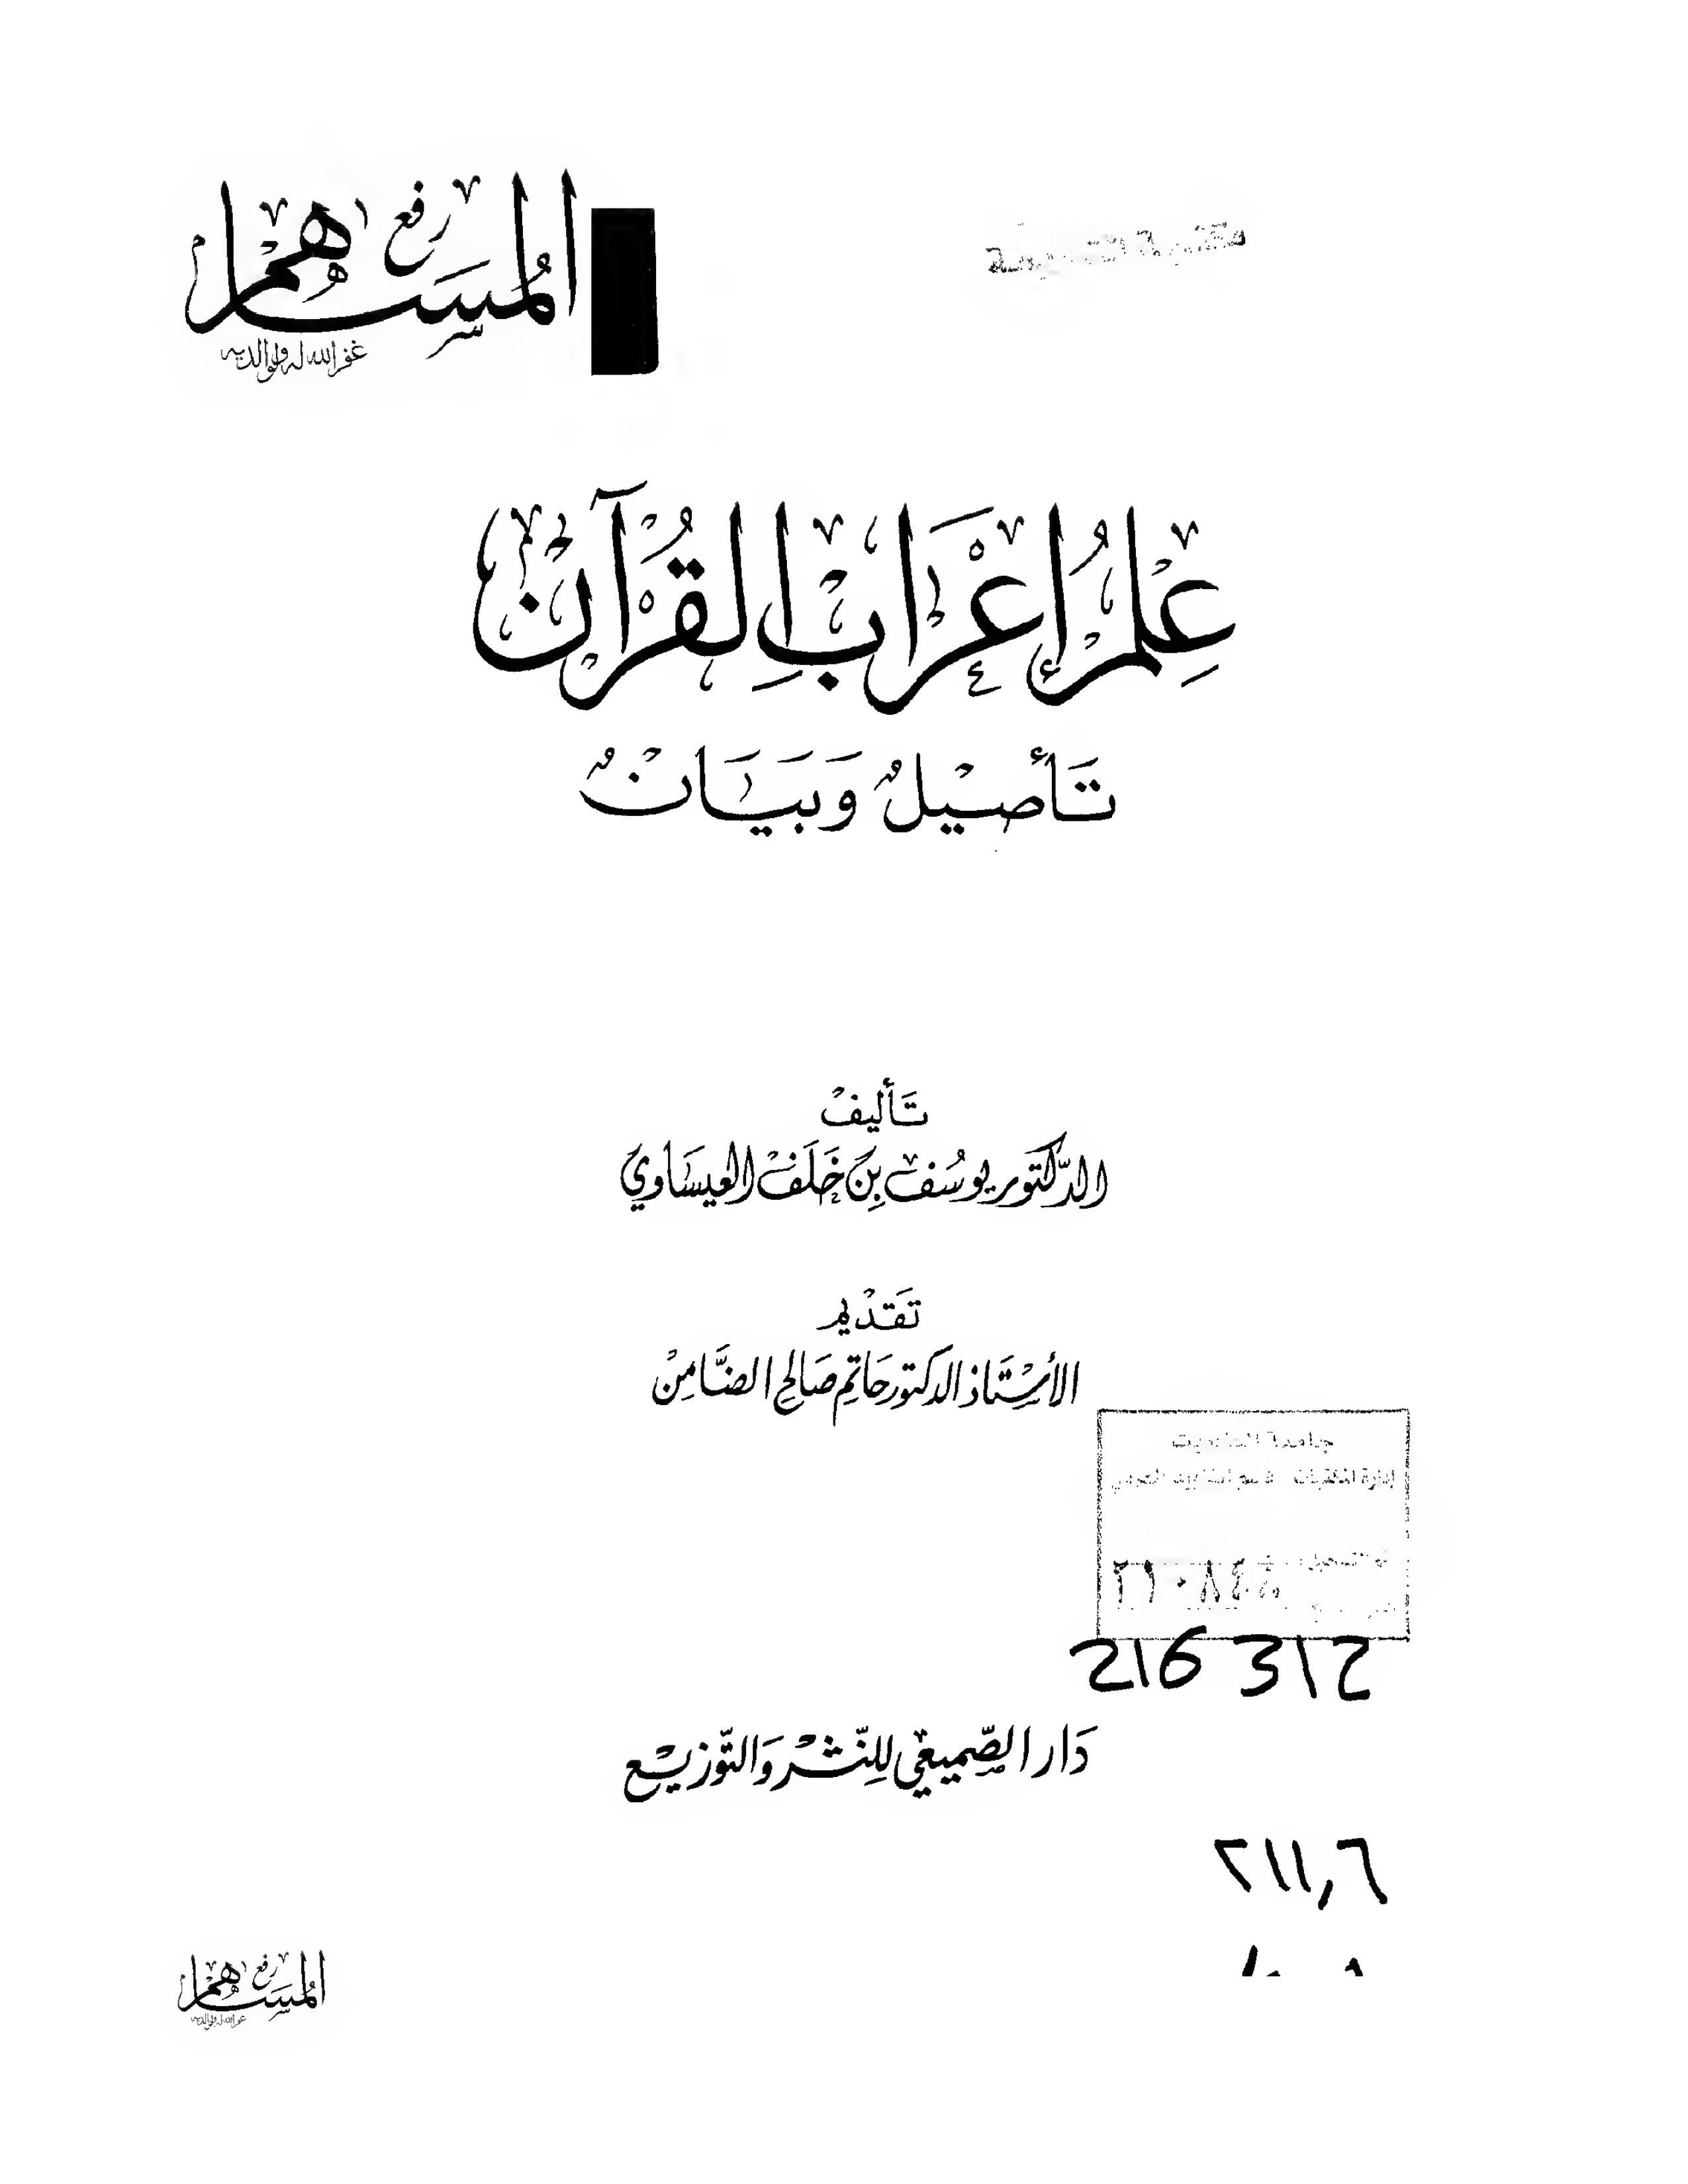 رفع
المساهم
غفر الله له ولوالديه
عِلْمُ إِعْرَابِ القُرْآنْ
تَأصِيْلٌ وَبَيَانٌ
تَأليفْ
الدّكتور يوسُف بِن خَلَفْ العيسَاوي
تَقدْيم
الأسْتَاذ الدكتور حَاتِم صَالح الضَّامِنْ
جامعة الكويت
216 312
دَار الصّميعي للِنّشْر وَالتّوزيْع
٢١١,٦
رفع
المساهم
غفر الله له ولوالديه